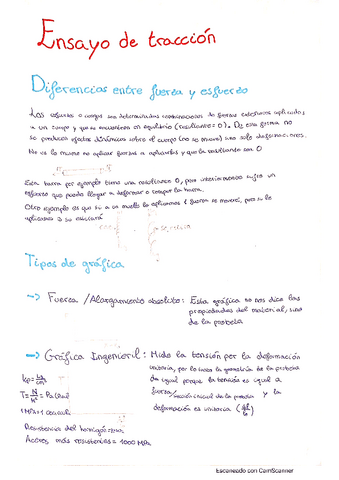 Ensayo de tracción
Diferencias entre fuerza y esfuerzo
Los esfuerzos o cargas son determinadas combinaciones de fuerzas exteriores aplicadas
a un cuerpo y que se encuentran en equilibrio (resultante = 0). De esta forma no
se producen efectos dinámicos sobre el cuerpo (no se mueve) sino solo deformaciones.
No es lo mismo no aplicar fuerzas a aplicarlas y que la resultante sea 0
Esta barra por ejemplo tiene una resultante 0, pero interiormente sufre un
esfuerzo que puede llegar a deformar o romper la barra.
Otro ejemplo es que si a un muelle le aplicamos 1 fuerza se moverá, pero si le
aplicamos 2 se estirará
Tipos de gráfica
–> Fuerza / Alargamiento absoluto: Esta gráfica no nos dice las
propiedades del material, sino
de la probeta
–> Gráfica Ingenieril: Mide la tensión por la deformación
unitaria, por lo tanto la geometría de la probeta
da igual porque la tensión es igual a
fuerza/sección inicial de la probeta y la
deformación es unitaria
Resistencia del hormigón
Aceros más resistentes = 1000 MPa
Escaneado con CamScanner